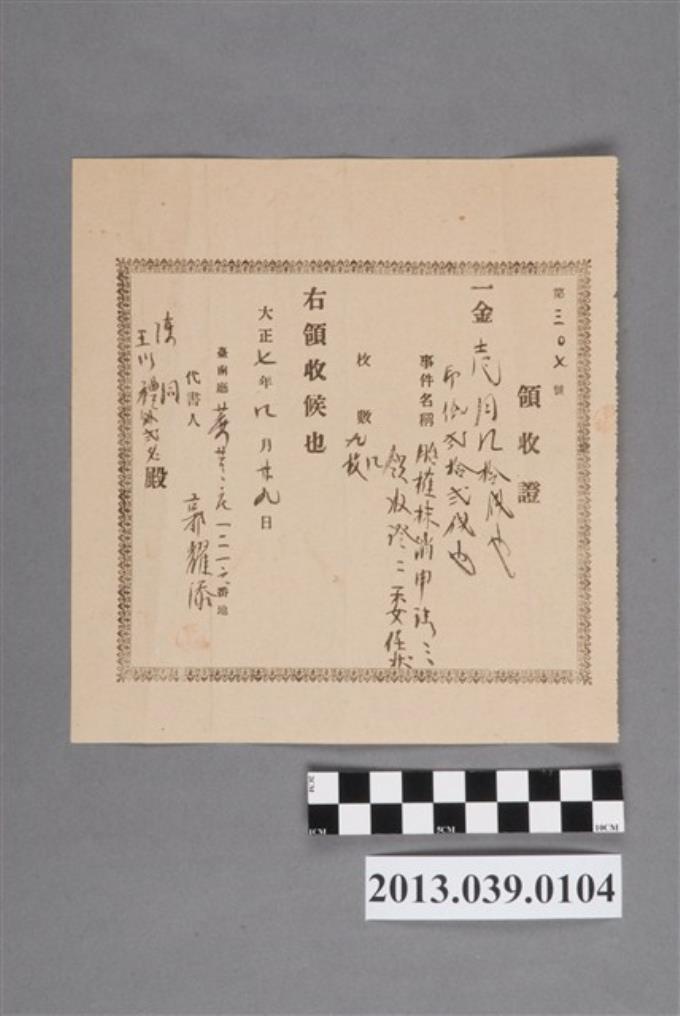 第三〇七號
領收證
一金壱円八拾戋也
印紙弐拾弐戋也
事件名稱 胎權抹消申請三
領收證二 委任状
枚數九枚
右領收候也
大正七年八月廿九日
臺南廳 一二一六番地
代書人 郭耀添
陳同
殿
2CM
1CM
5CM
10CM
2013.039.0104